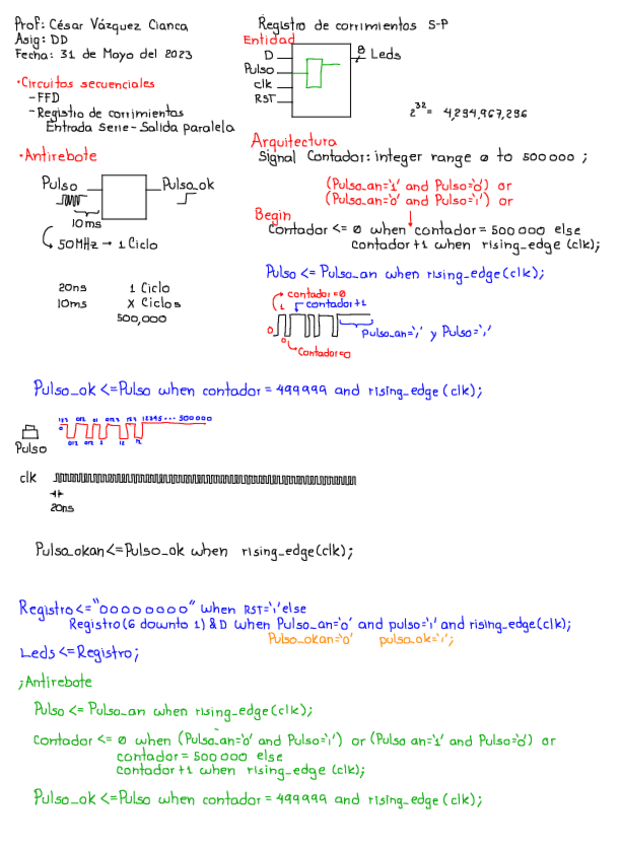 Prof: César Vázquez Cianca
Asig: DD
Fecha: 31 de Mayo del 2023
·Circuitos secuenciales
-FFD
-Registro de corrimientos
Entrada Serie-Salida paralela
·Antirebote
Pulso
Pulso_ok
10ms
50MHz → 1 Ciclo
20ns 1 Ciclo
10ms X Ciclos
500,000
Registro de corrimientos S-P
Entidad
D
Pulso
clk
RST
8 Leds
2^32 = 4,294,967,296
Arquitectura
Signal Contador: integer range 0 to 500000 ;
(Pulso_an='1' and Pulso='0') or
(Pulso_an='0' and Pulso='1') or
Begin
Contador <= 0 when contador = 500 000 else
contador+1 when rising_edge (clk);
Pulso <= Pulso_an when rising_edge(clk);
contador=0
1 contador+1
0
0
Contador=0
Pulso_an='1' y Pulso='1'
Pulso_ok <=Pulso when contador = 499999 and rising_edge (clk);
12345 ··· 500000
Pulso
clk
20ns
Pulso_okan<=Pulso_ok when rising_edge(clk);
Registro<="00000000" when RST='1' else
Registro(6 downto 1) & D when Pulso_an='0' and pulso='1' and rising_edge(clk);
Pulso_okan='0' pulso_ok='1';
Leds <=Registro;
;Antirebote
Pulso <= Pulso_an when rising_edge(clk);
Contador <= 0 when (Pulso_an='0' and Pulso='1') or (Pulso an='1' and Pulso='0') or
contador = 500 000 else
contador+1 when rising_edge (clk);
Pulso_ok <=Pulso when contador = 499999 and rising_edge (clk);